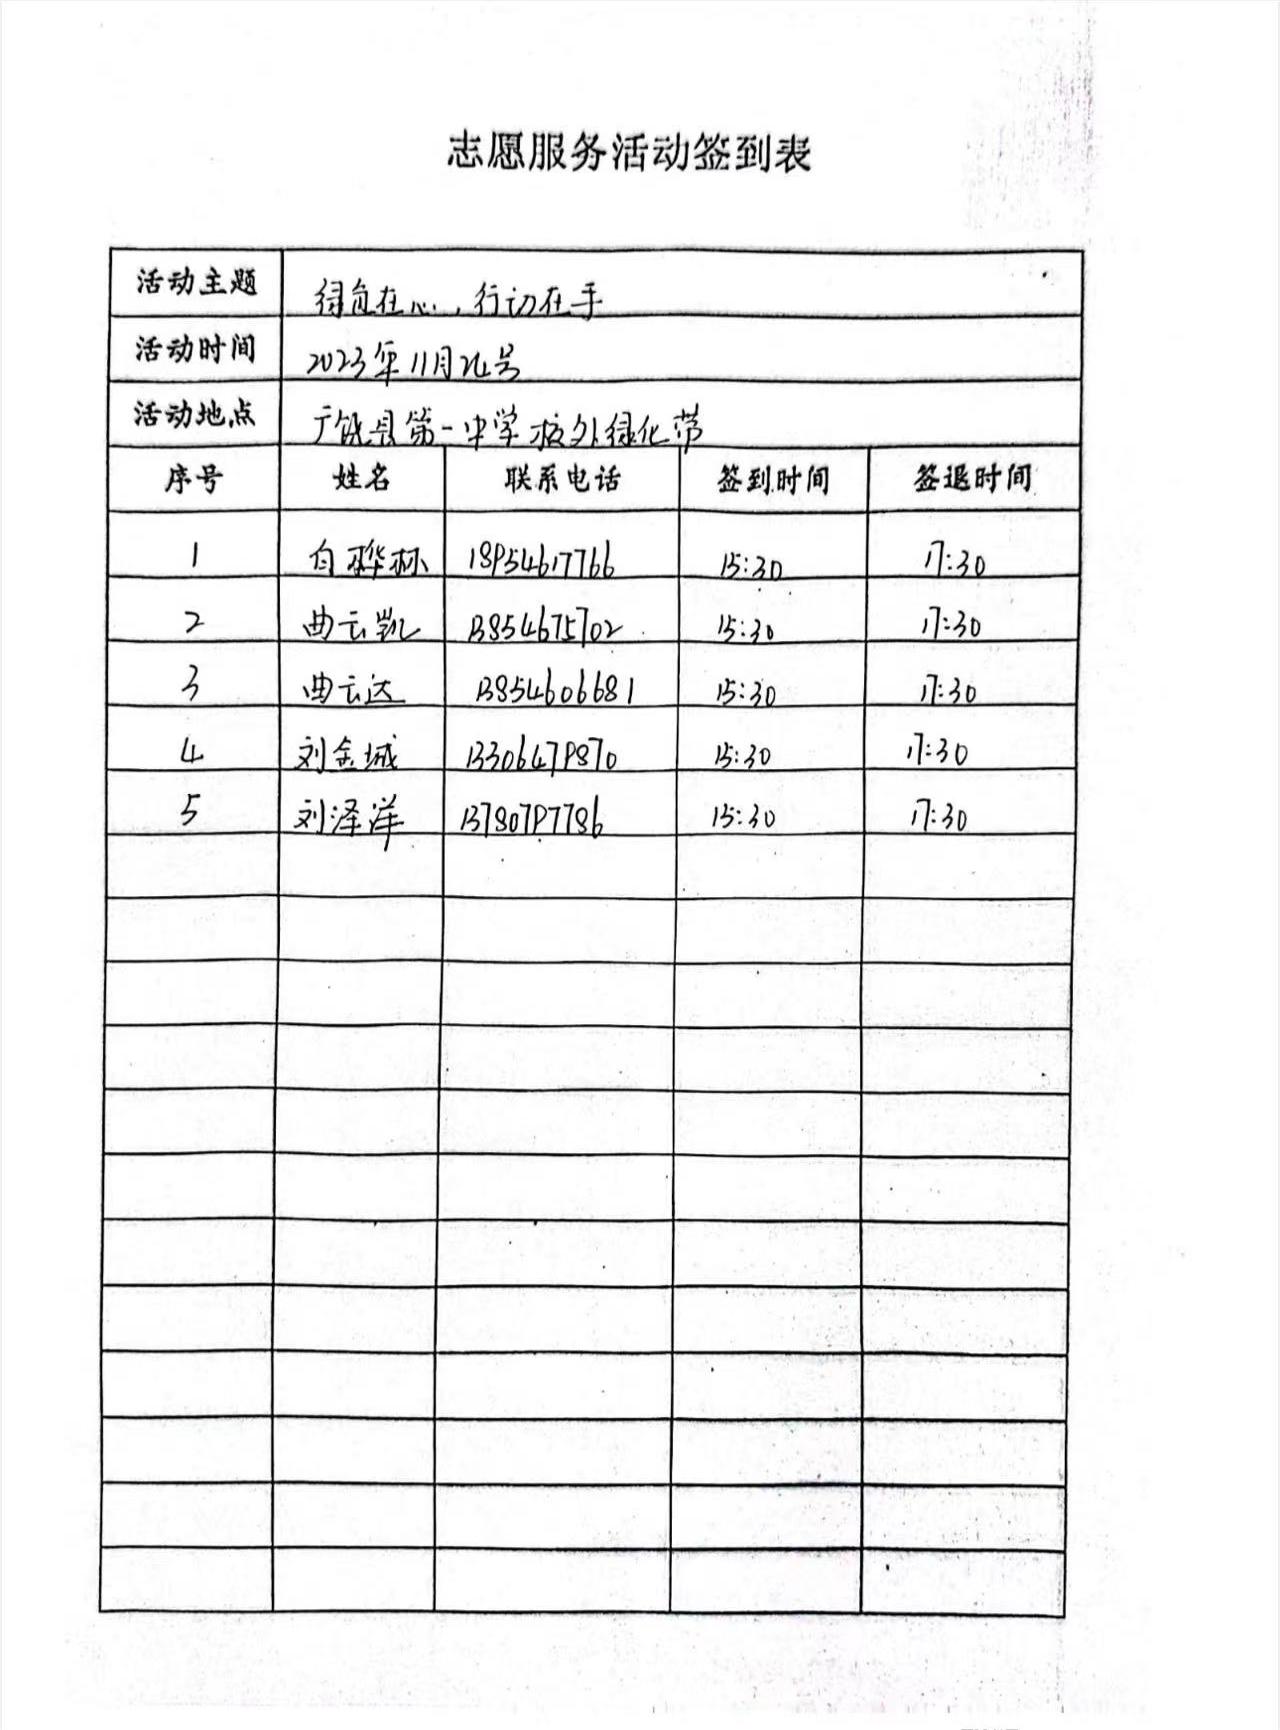 志愿服务活动签到表
活动主题 绿色在心，行动在手
活动时间 2023年11月26号
活动地点 广饶县第一中学校外绿化带
序号 姓名 联系电话 签到时间 签退时间
1 18954617766 15:30 17:30
2 曲云凯 13854675702 15:30 17:30
3 曲云达 13854606681 15:30 17:30
4 刘金城 13306479870 15:30 17:30
5 刘泽洋 13780797786 15:30 17:30